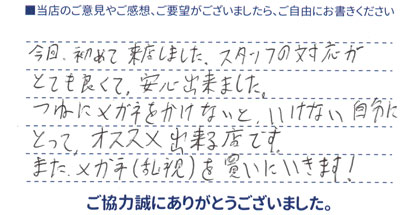 ■当店のご意見やご感想、ご要望がございましたら、ご自由にお書きください
今回、初めて来店しました、スタッフの対応が
とても良くて、安心出来ました。
つねにメガネをかけないと、いけない自分に
とって、オススメ出来る店です。
また、メガネ(乱視)を買いにいきます!
ご協力誠にありがとうございました。